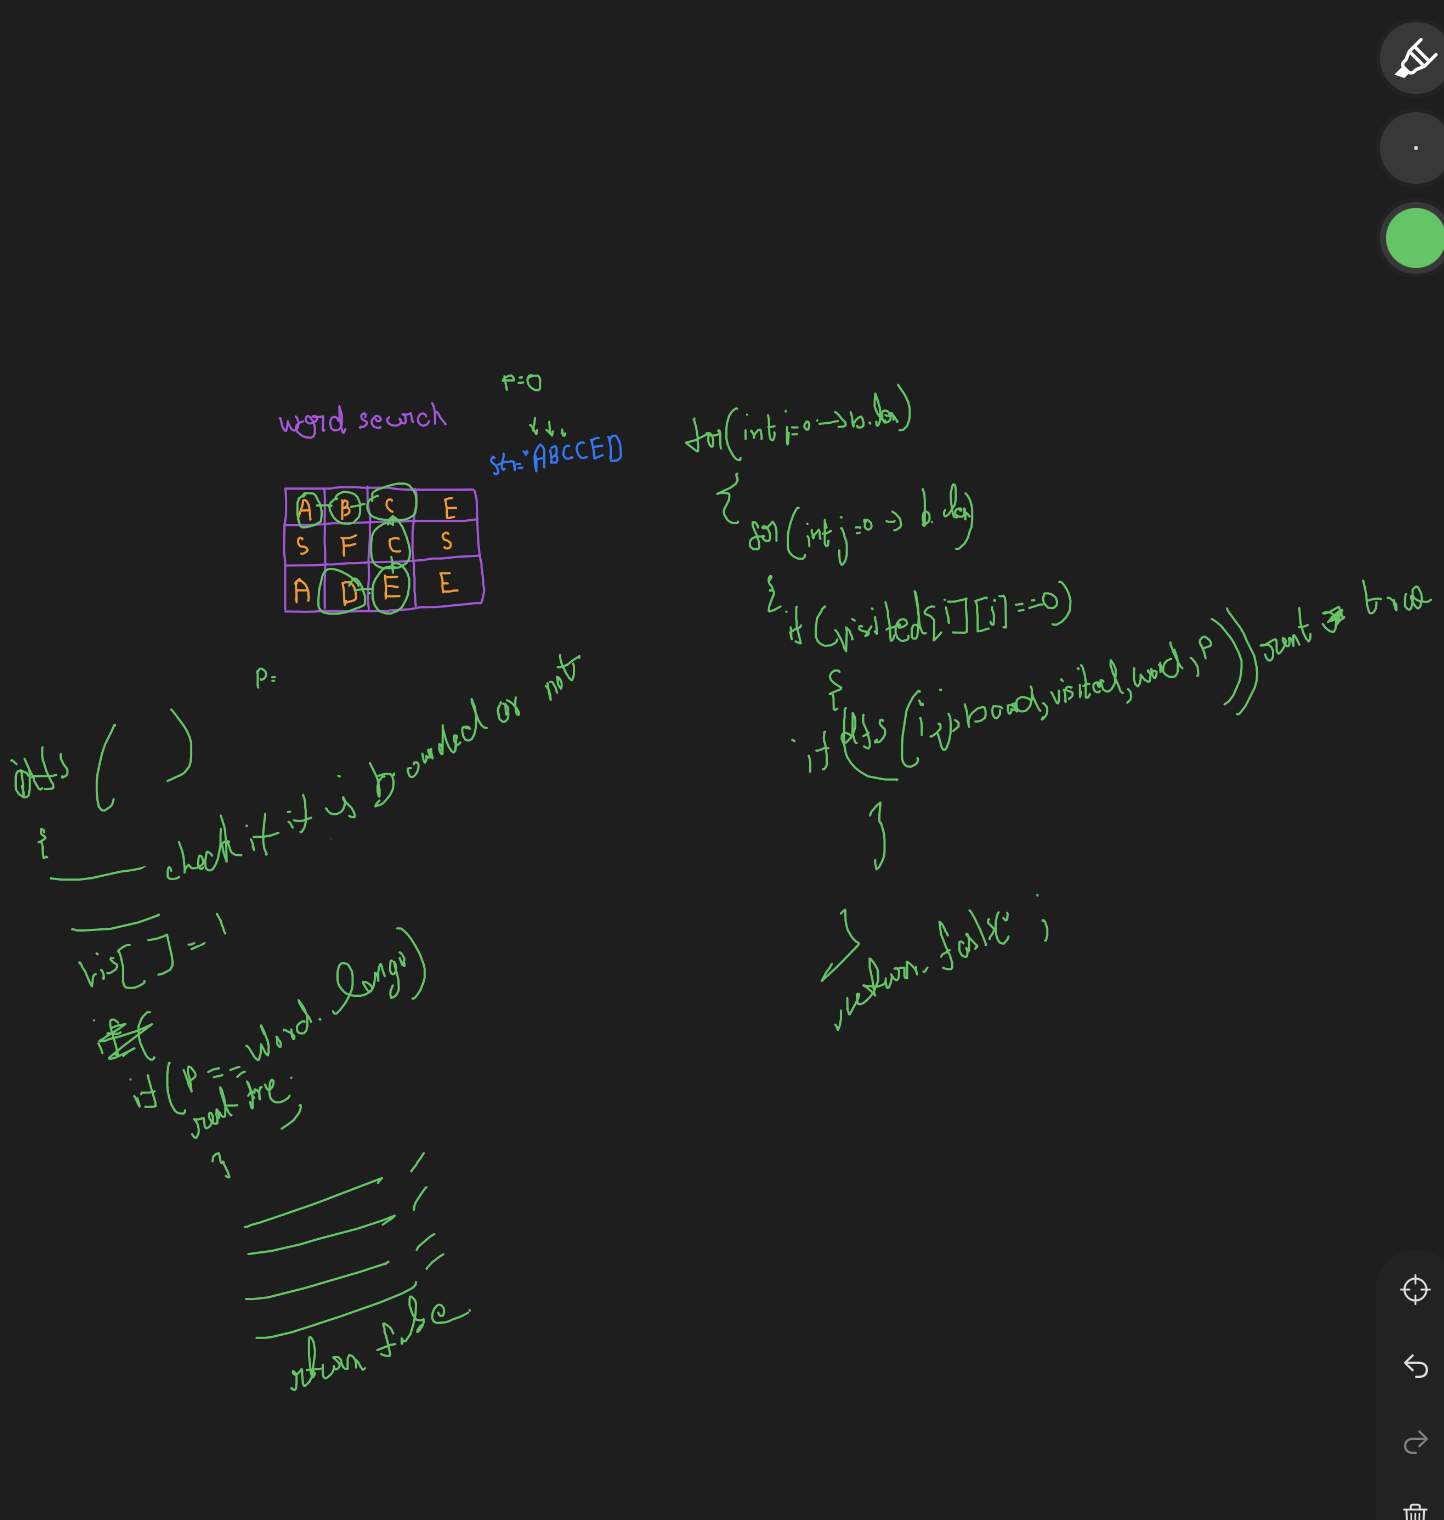 P=0
word search
str="ABCCED
A B C E
S F C S
A D E E
P=
dfs ( )
{
check if it is bounded or not
vis[ ] = 1
if(
if(P==word.
}
return false
for(int i=0->b.len)
{
for(int j=0->b.len)
{
if(visited[i][j]==0)
{
if(dfs(i,j,board,visited,word,P)) true
}
}
return false;